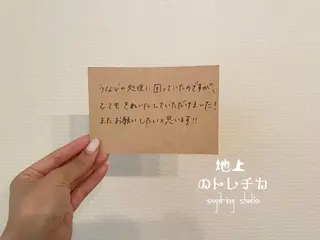 うなじの処理に困っていたのですが、
とてもきれいにしていただけました!
またお願いしたいと思います!!
地上
のトレチカ
sugaring studio